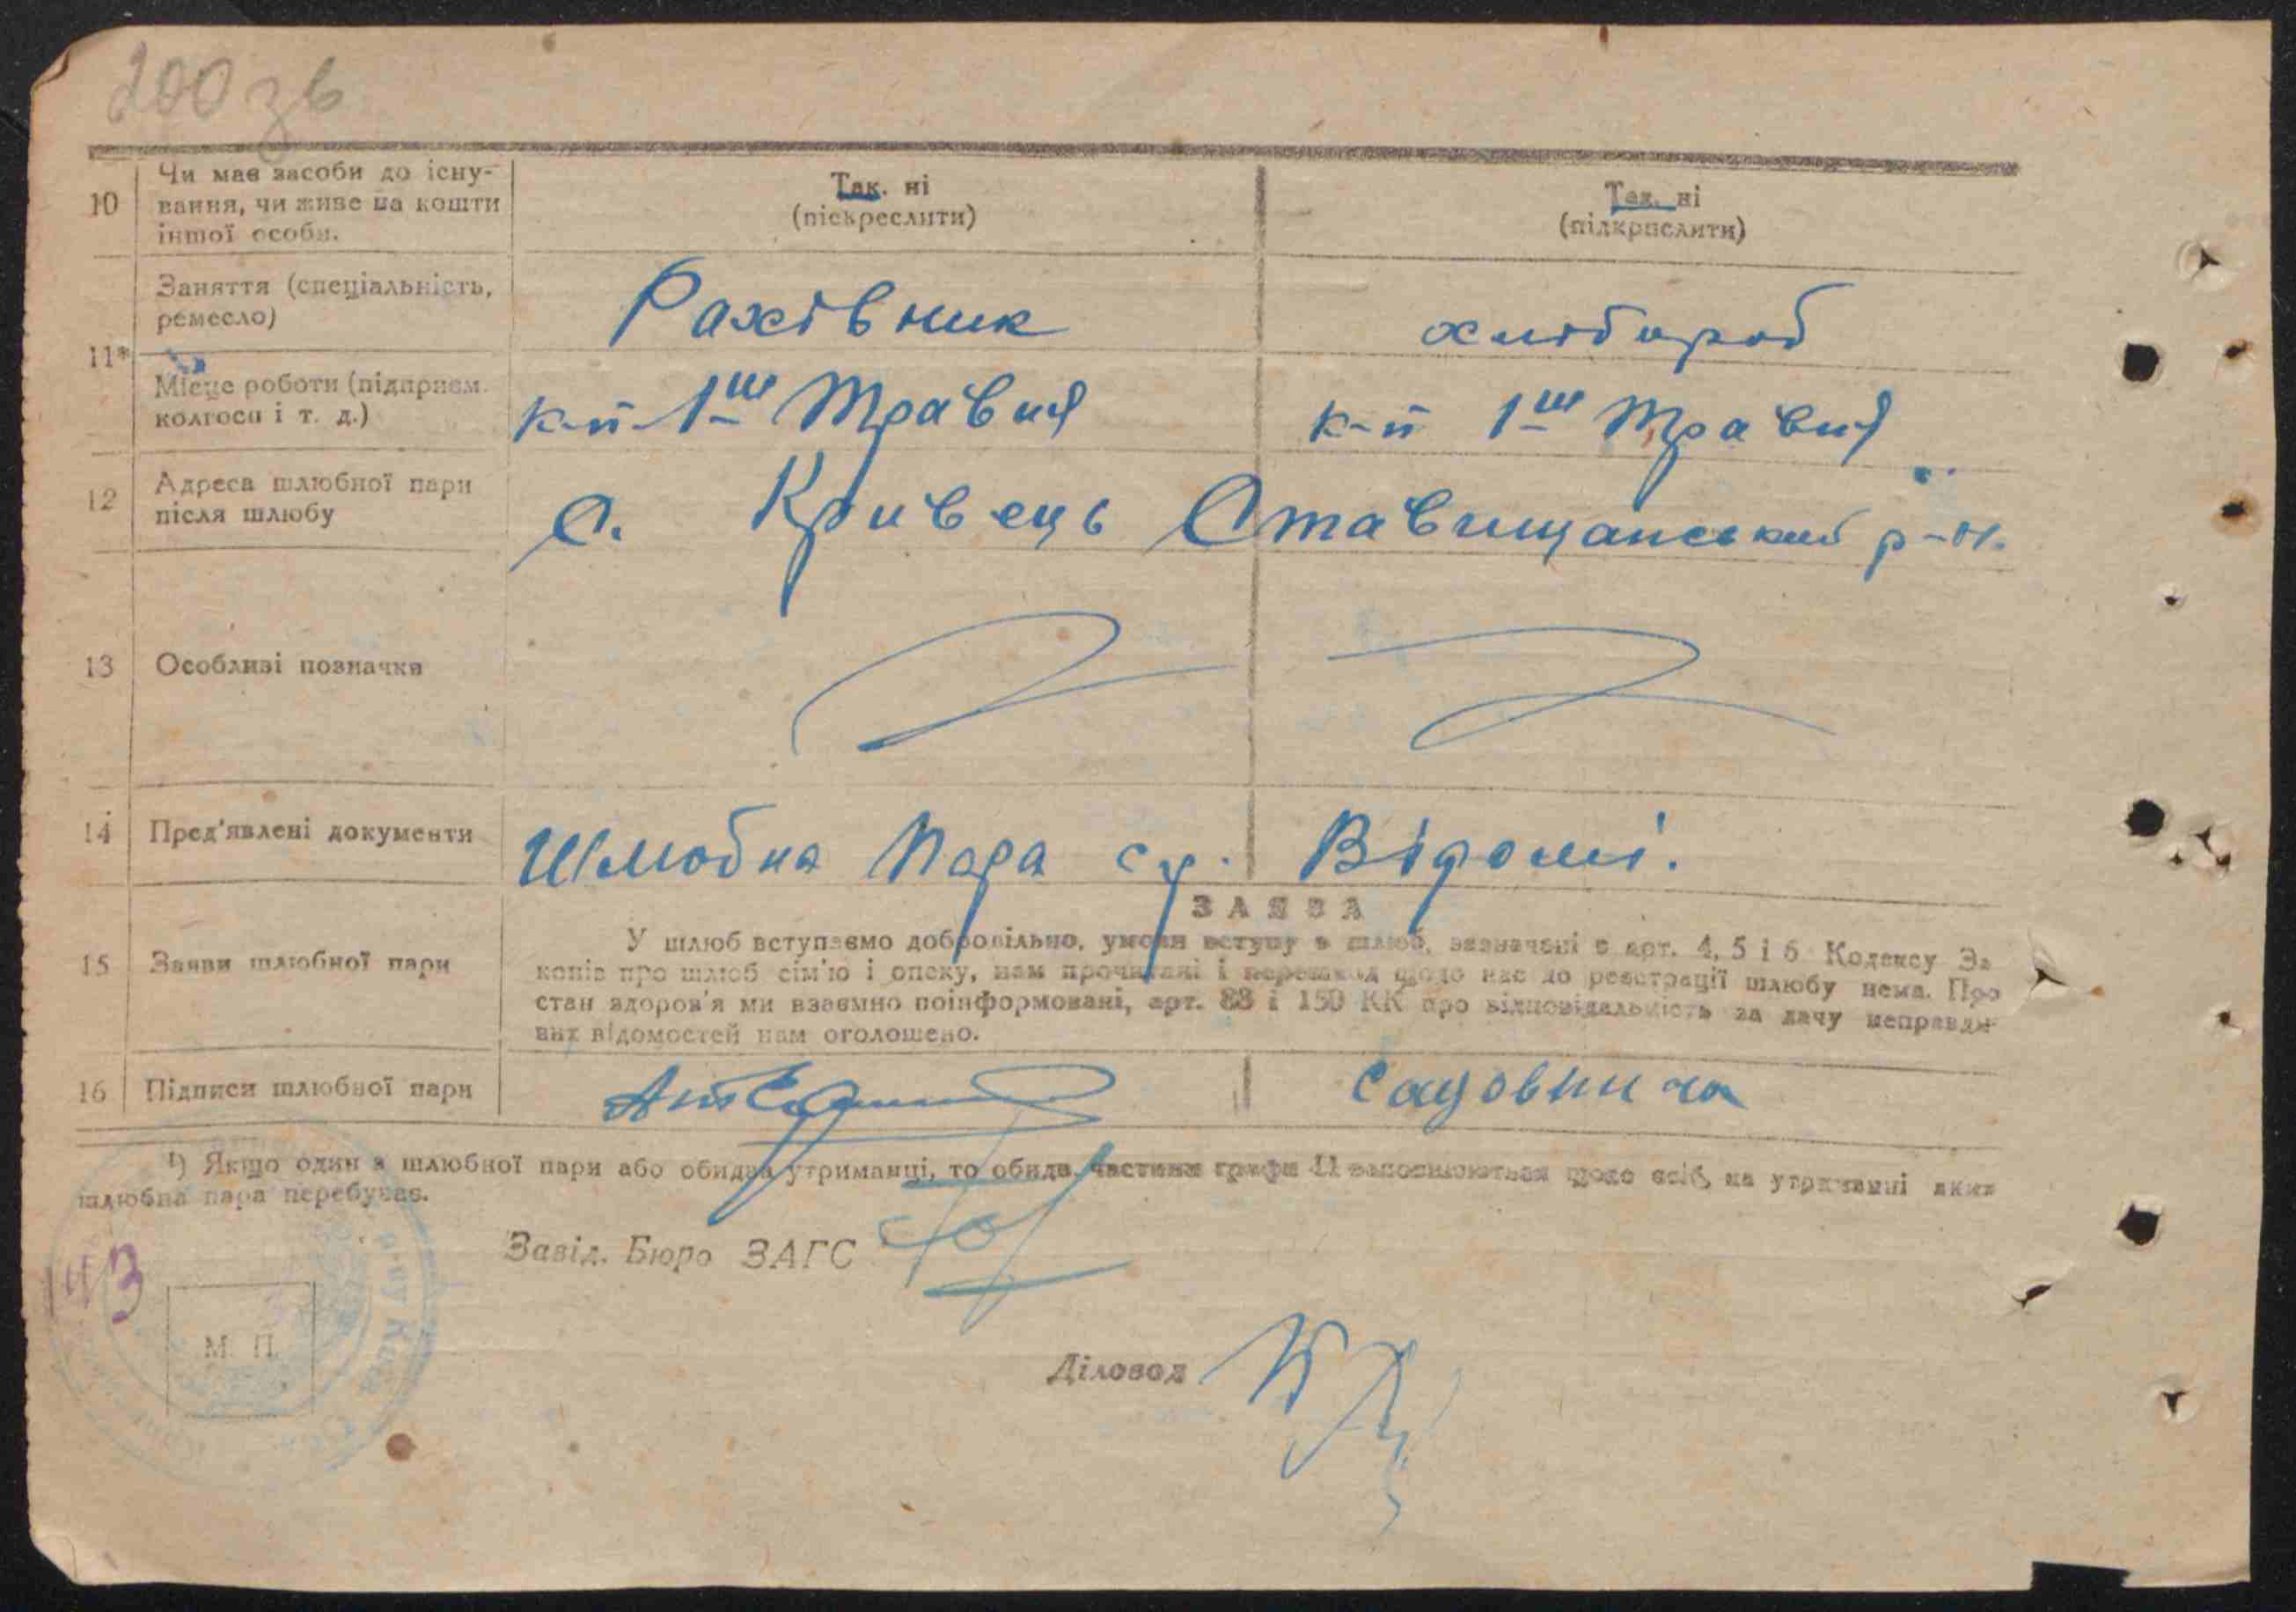 200 зв
10
Чи має засоби до існу-
вання, чи живе на кошти
іншої особи.
Так. ні
(піскреслити)
Так. ні
(підкрислити)
11*
Заняття (спеціальність,
ремесло)
Рахівник
хлібороб
Місце роботи (підприєм.
колгосп і т. д.)
к-п 1ш Травня
к-п 1ш Травня
12
Адреса шлюбної пари
після шлюбу
с. Кривець Ставищанський р-н.
13
Особливі позначки
14
Пред'явлені документи
Шлюбна пара с/р. Відомі.
15
Заяви шлюбної пари
ЗАЯВА
У шлюб вступаємо добровільно, умови вступу в шлюб, зазначені в арт. 4, 5 і 6 Кодексу За
конів про шлюб сім'ю і опеку, нам прочитані і перешкод щодо нас до реєстрації шлюбу нема. Про
стан здоров'я ми взаємно поінформовані, арт. 88 і 150 КК про відповідальність за дачу неправди-
вих відомостей нам оголошено.
16
Підписи шлюбної пари
Садовнича
¹) Якщо один з шлюбної пари або обидва утриманці, то обидв. частини графи 11 заповнюються щодо осіб, на утриманні яких
шлюбна пара перебуває.
Завід. Бюро ЗАГС
143
М. П.
Діловод